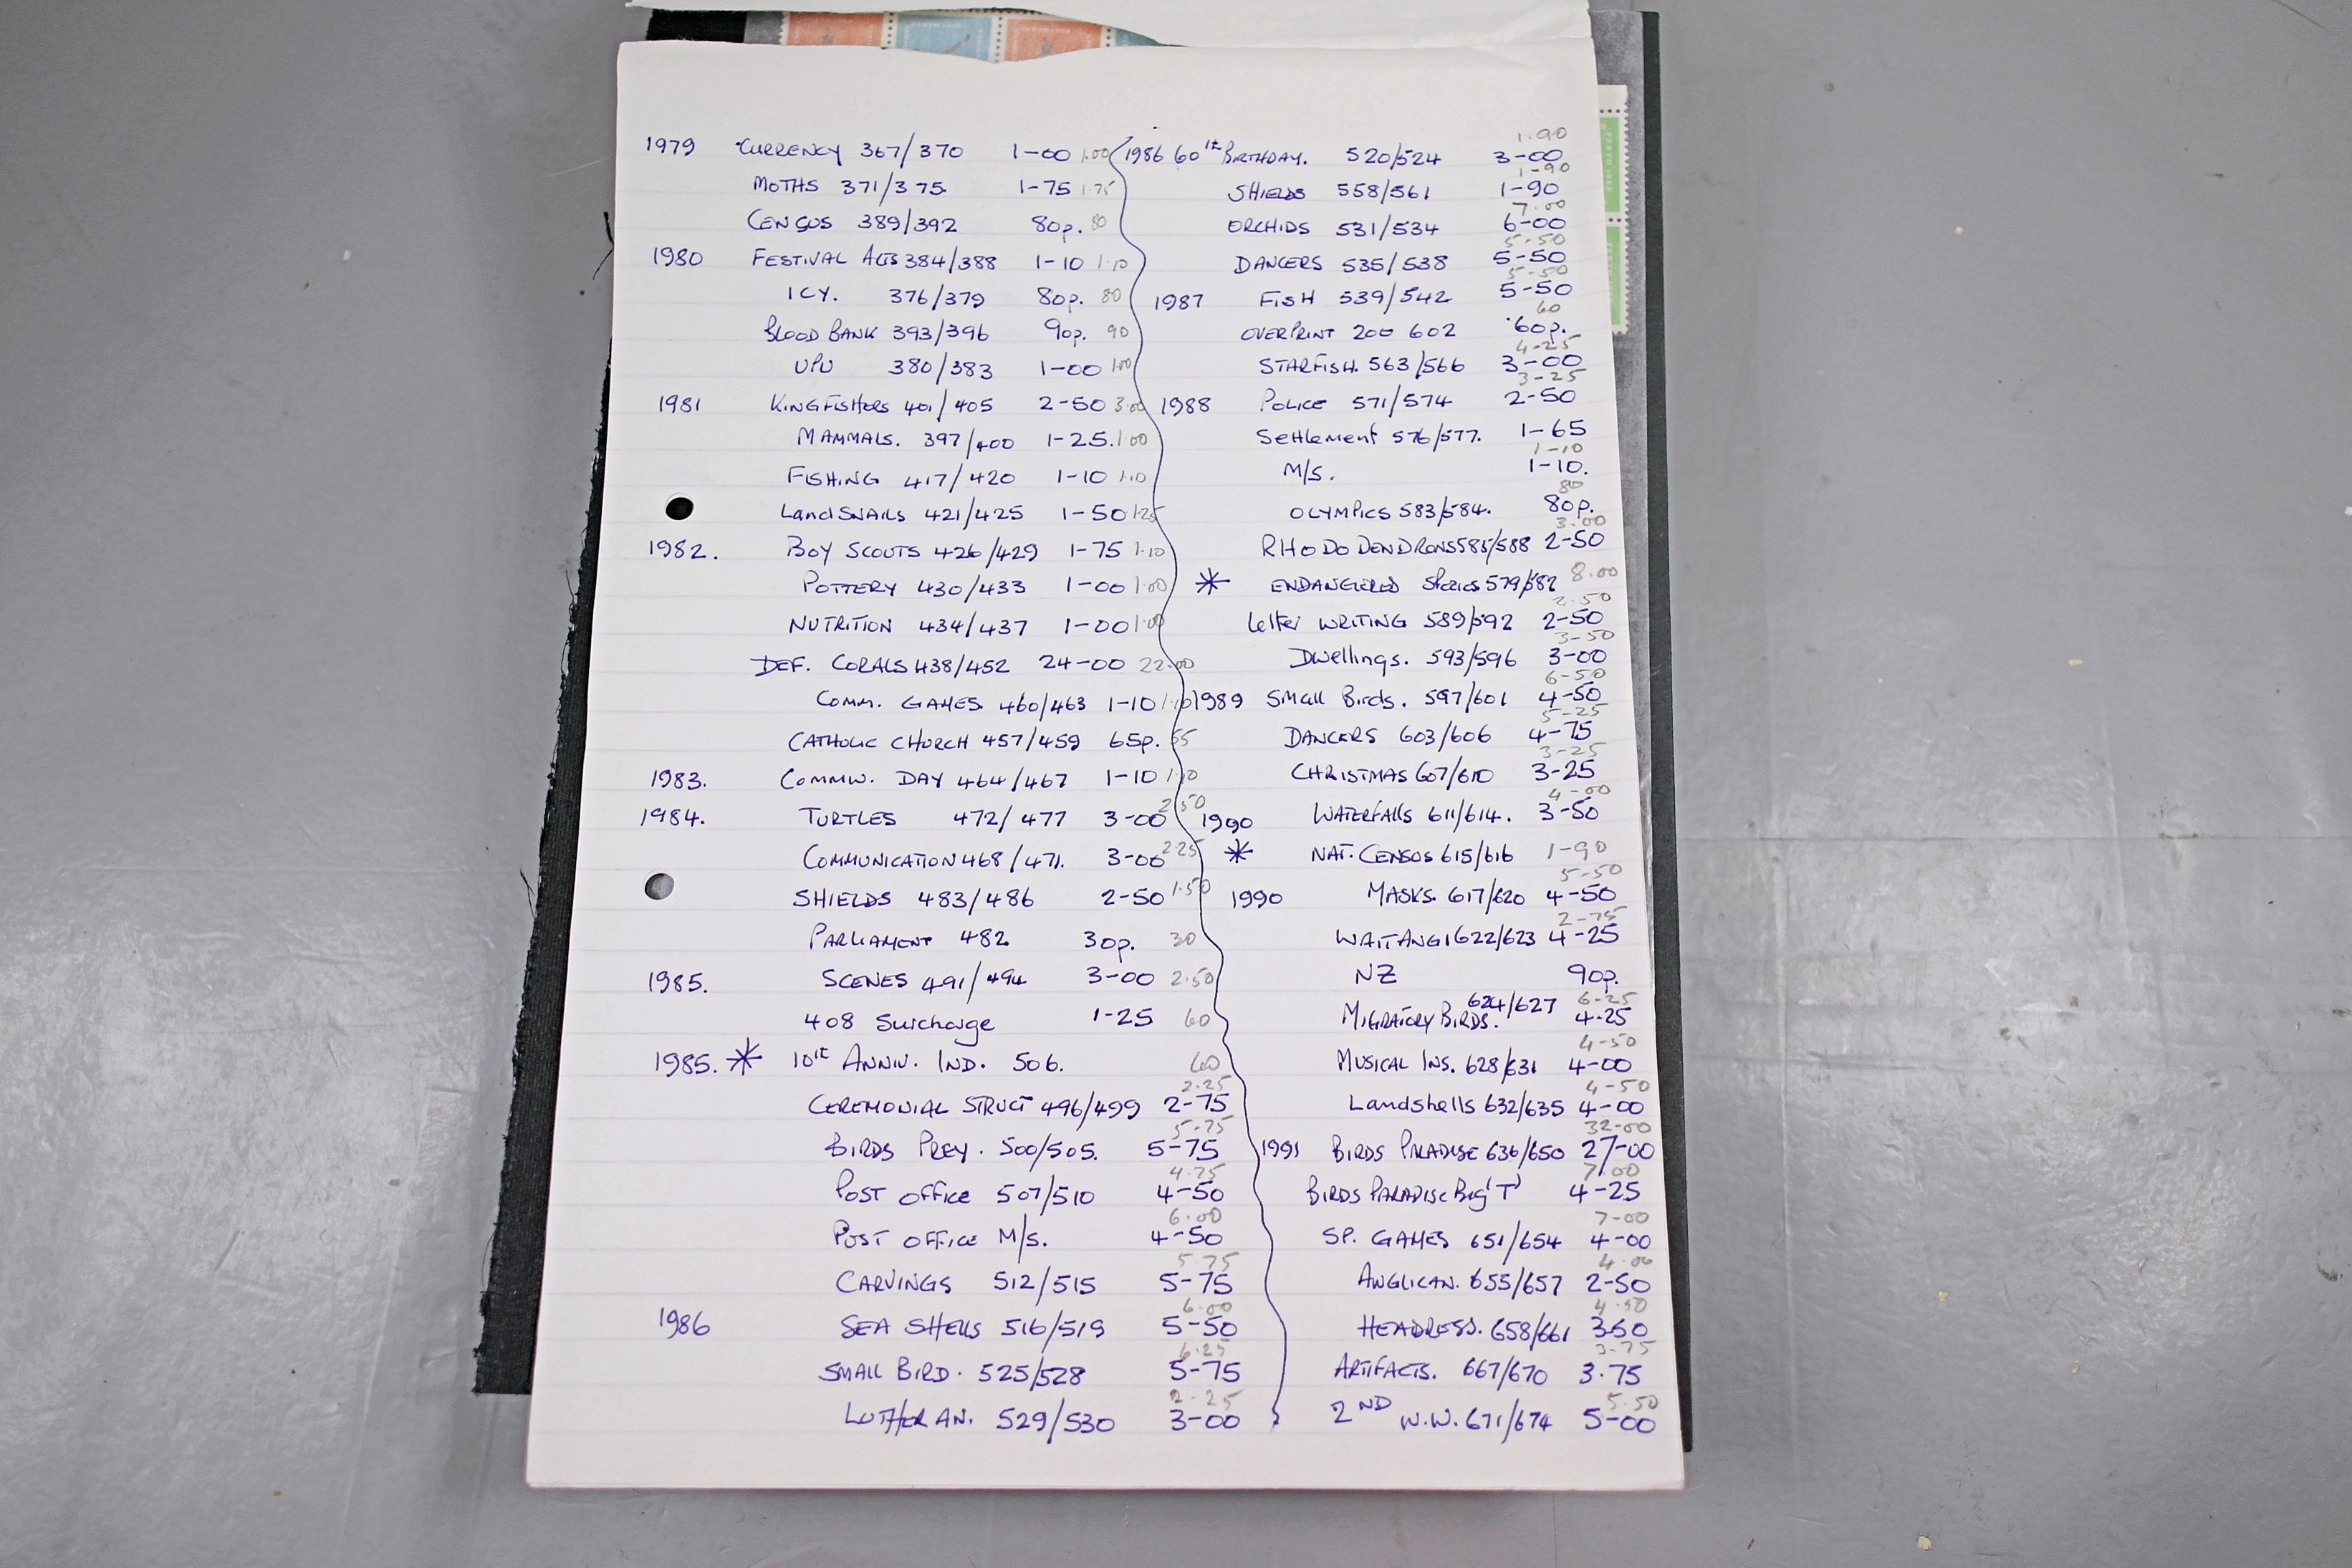 1979 CURRENCY 367/370 1-00 1.00
MOTHS 371/375 1-75 1.75
CENSUS 389/392 80p. 80
1980 FESTIVAL ARTS 384/388 1-10 1.10
ICY. 376/379 80p. 80
BLOOD BANK 393/396 90p. 90
UPU 380/383 1-00 1.00
1981 KINGFISHERS 401/405 2-50 3.00
MAMMALS. 397/400 1-25. 1.00
FISHING 417/420 1-10 1.10
Land SNAILS 421/425 1-50 1.25
1982. BOY SCOUTS 426/429 1-75 1.10
POTTERY 430/433 1-00 1.00
NUTRITION 434/437 1-00 1.00
DEF. CORALS 438/452 24-00 22.00
COMM. GAMES 460/463 1-10 1.10
CATHOLIC CHURCH 457/459 65p. 65
1983. COMMW. DAY 464/467 1-10 1.10
1984. TURTLES 472/477 3-00 2.50
COMMUNICATION 468/471. 3-00 2.25
SHIELDS 483/486 2-50 1.50
PARLIAMENT 482 30p. 30
1985. SCENES 491/494 3-00 2.50
408 Surcharge 1-25 60
1985. * 10th ANNIV. IND. 506. 60
CEREMONIAL STRUCT 496/499 2-75 2.25
BIRDS PREY. 500/505. 5-75 5-75
POST OFFICE 507/510 4-50 4.75
POST OFFICE M/S. 4-50 6.00
CARVINGS 512/515 5-75 5.75
1986 SEA SHELLS 516/519 5-50 6.00
SMALL BIRD. 525/528 5-75 6.25
LUTHERAN. 529/530 3-00 2.25
1986 60th BIRTHDAY. 520/524 3-00 1.90
SHIELDS 558/561 1-90 1-90
ORCHIDS 531/534 6-00 7.00
DANCERS 535/538 5-50 5-50
1987 FISH 539/542 5-50 5-50
OVERPRINT 200 602 60p. 60
STARFISH. 563/566 3-00 4-25
1988 POLICE 571/574 2-50 3-25
Settlement 576/577. 1-65
M/S. 1-10. 1-10
OLYMPICS 583/584. 80p. 80
RHODODENDRONS 585/588 2-50 3.00
* ENDANGERED Species 579/582 8.00
Letter WRITING 589/592 2-50 2.50
Dwellings. 593/596 3-00 3-50
1989 Small Birds. 597/601 4-50 6-50
DANCERS 603/606 4-75 5-25
CHRISTMAS 607/610 3-25 3-25
1990 WATERFALLS 611/614. 3-50 4-00
* NAT. CENSUS 615/616 1-90
1990 MASKS. 617/620 4-50 5-50
WAITANGI 622/623 4-25 2-75
NZ 90p.
MIGRATORY BIRDS. 624/627 4-25 6-25
MUSICAL INS. 628/631 4-00 4-50
Landshells 632/635 4-00 4-50
1991 BIRDS PARADISE 636/650 27-00 32-00
BIRDS PARADISE Big 'T' 4-25 7.00
SP. GAMES 651/654 4-00 7-00
ANGLICAN. 655/657 2-50 4.00
HEADRESS. 658/661 3.50 4.50
ARTIFACTS. 667/670 3.75 3-75
2ND W.W. 671/674 5-00 5.50